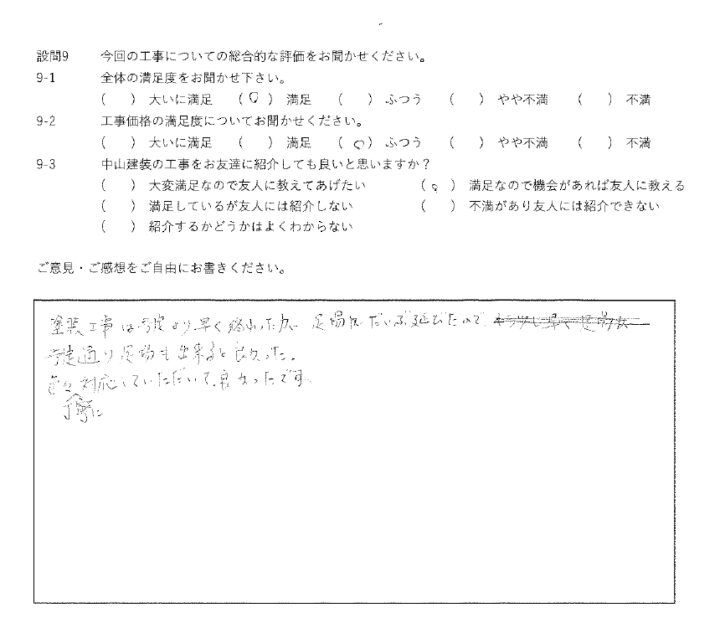 設問9 今回の工事についての総合的な評価をお聞かせください。
9-1 全体の満足度をお聞かせ下さい。
( ) 大いに満足 (○) 満足 ( ) ふつう ( ) やや不満 ( ) 不満
9-2 工事価格の満足度についてお聞かせください。
( ) 大いに満足 ( ) 満足 (○) ふつう ( ) やや不満 ( ) 不満
9-3 中山建装の工事をお友達に紹介しても良いと思いますか？
( ) 大変満足なので友人に教えてあげたい (○) 満足なので機会があれば友人に教える
( ) 満足しているが友人には紹介しない ( ) 不満があり友人には紹介できない
( ) 紹介するかどうかはよくわからない
ご意見・ご感想をご自由にお書きください。
塗装工事は予定より早く終わったが 足場がだいぶ延びたので
予定通り足場も出来ると良かった。
色々対応していただいて、良かったです。
丁寧に